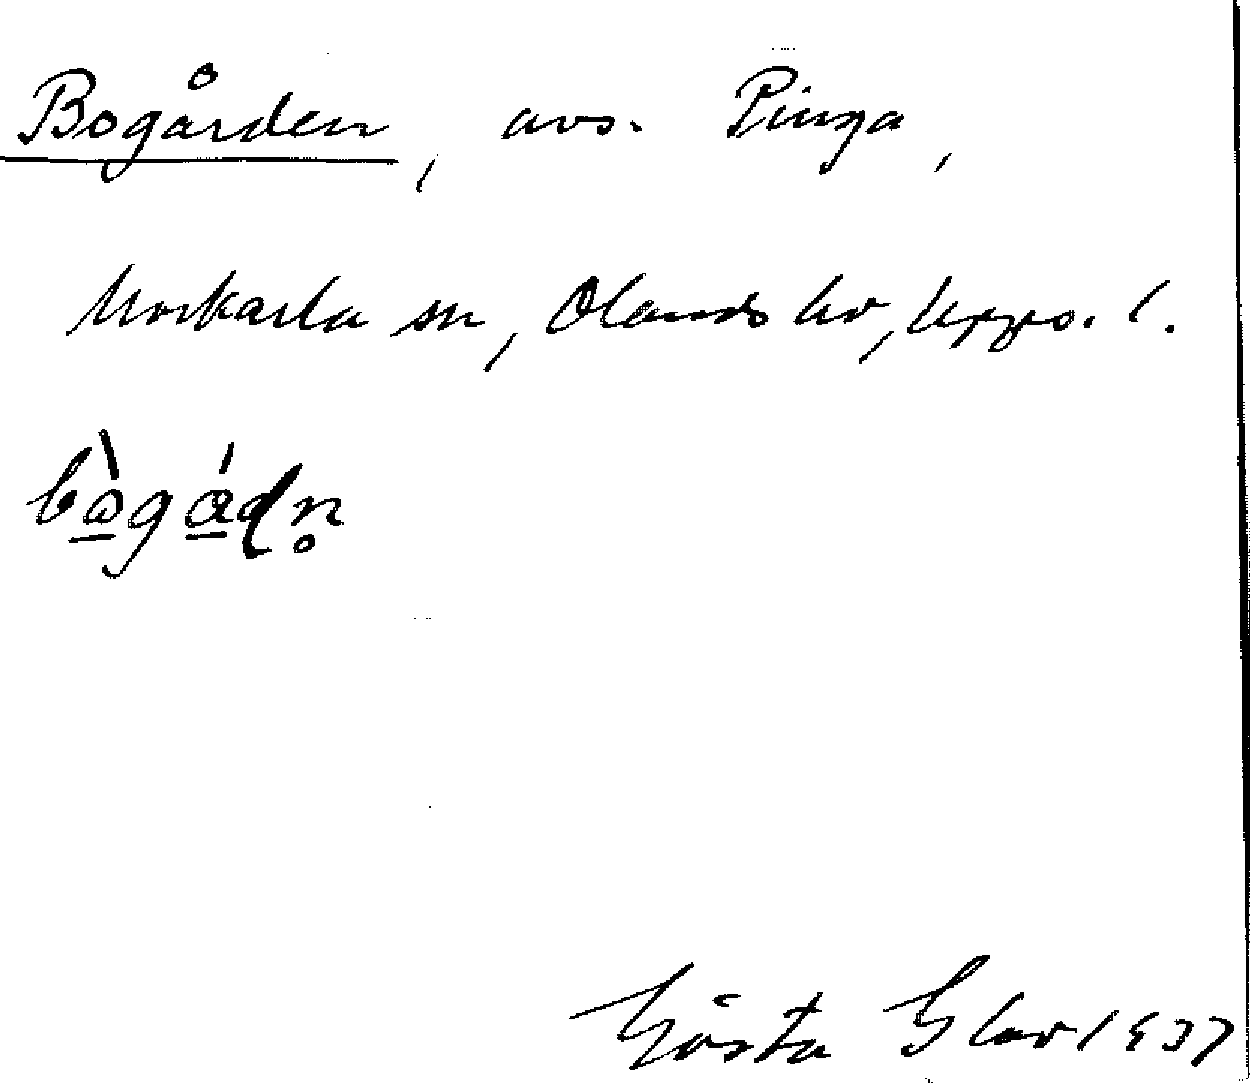 Bogården, avs. Pinga,
Morkarla sn, Olands hd, Upps. l.
Gösta Elav 1937